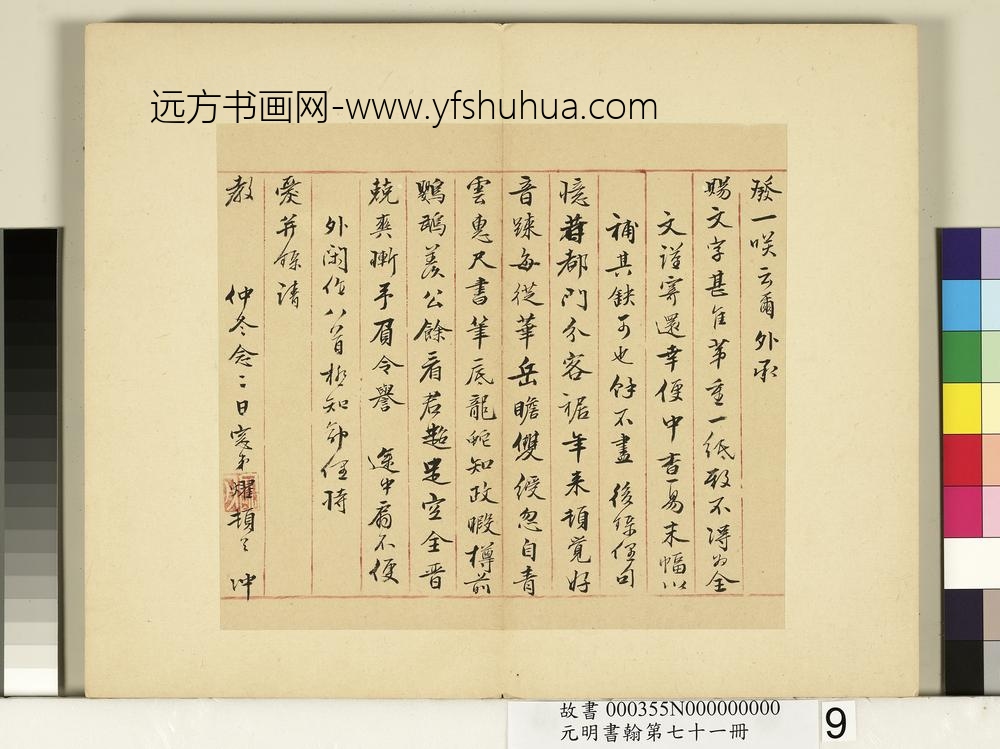 远方书画网-www.yfshuhua.com
發一咲云爾外承
賜文字甚佳第重一紙殺不得為全
文謹寄還幸便中查易末幅以
補其缺可也餘不盡後錄俚句
憶昔都門分客裾年来頓覺好
音踈每從華岳瞻雙綬忽自青
雲惠尺書筆底龍蛇知政暇樽前
鸚鵡羨公餘看君超足空全晋
兢爽晰予眉令譽途中扇不便
外閑作八首極知鄙俚特
愛并録請
教
仲冬念二日寔弟耀頓首
冲
故書 000355N000000000
元明書翰第七十一冊
9